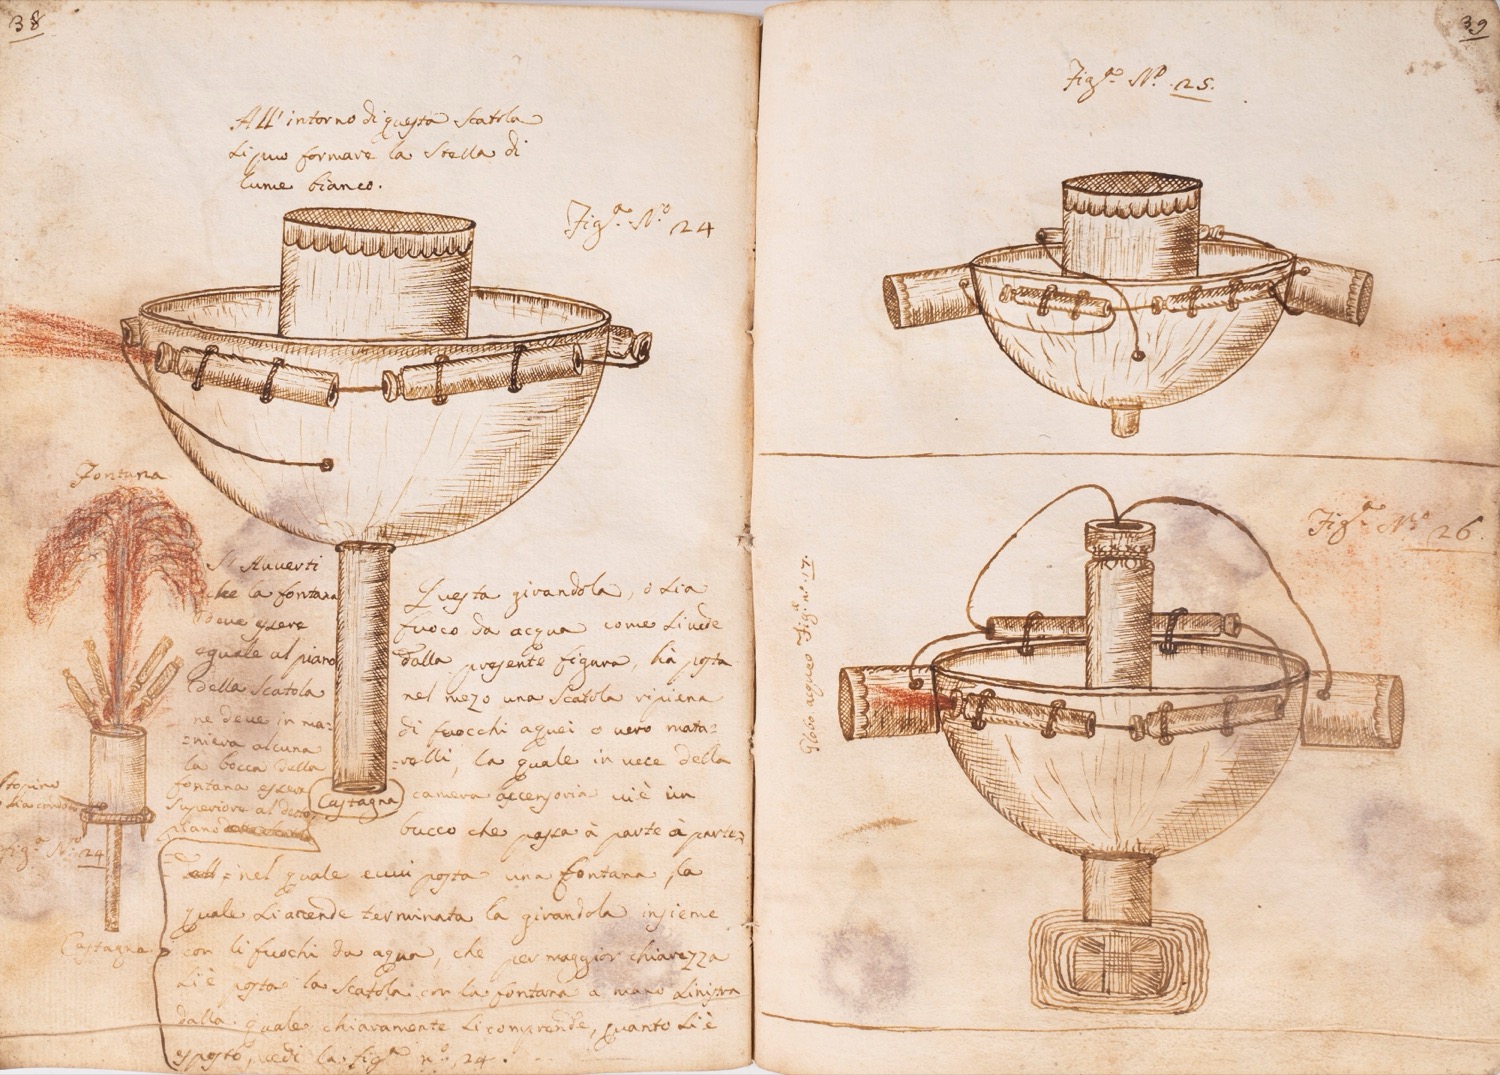 38
All' intorno di questa Scatola
si può formare la Stella di
lume bianco.
Fig.ª N.º 24
Fontana
Si Avverti
che la fontana
deve essere
eguale al piano
della Scatola
ne deve in ma=
=niera alcuna
la bocca della
fontana essere
superiore al detto
piano
Stopino
Fig.ª N.º 24
Castagna
Castagna
Questa girandola, o sia
fuoco da acqua come si vede
dalla presente figura, hà posta
nel mezo una Scatola ripiena
di fuochi aquei o vero mata=
=relli, la quale in vece della
camera accensoria vi è un
bucco che passa à parte à parte,
nel quale evvi posta una fontana, la
quale si accende terminata la girandola insieme
con li fuochi da aqua, che per maggior chiarezza
si è posta la Scatola con la fontana a mano sinistra
dalla quale chiaramente si comprende, quanto si è
esposto, vedi la fig.ª n.º 24.
39
Fig.ª N.º 25.
Fig.ª N.º 26.
Globo acqueo Fig.ª n.º 17.